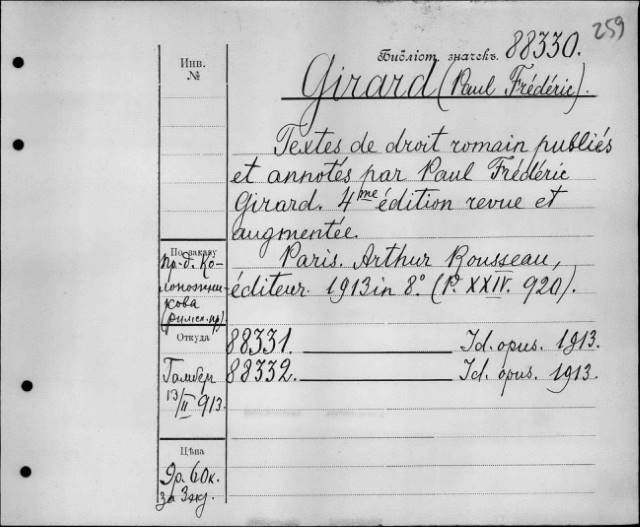 259
Библіот. значекъ. 88330.
Инв. №
Girard (Paul Frédéric).
Textes de droit romain publiés
et annotés par Paul Frédéric
Girard. 4me édition revue et
augmentée.
Paris. Arthur Rousseau,
éditeur. 1913 in 8°. (P. XXIV. 920).
По заказу
пр-д. Ко-
логоживи-
кова
(римск. пр.)
Откуда
88331. Id. opus. 1913.
Гамбер 88332. Id. opus. 1913.
13/II 913.
Цѣна
9р. 60к.
за 3 экз.